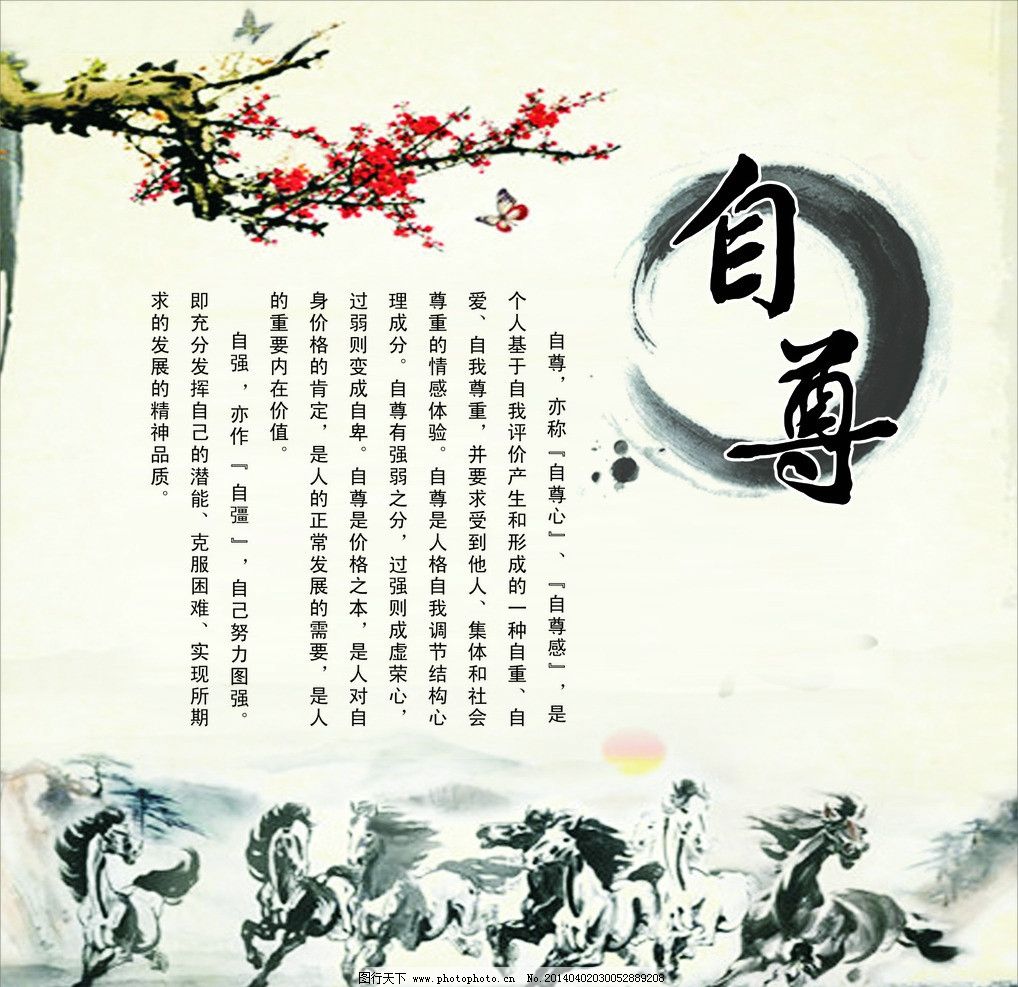 自尊
自尊，亦称『自尊心』、『自尊感』，是
个人基于自我评价产生和形成的一种自重、自
爱、自我尊重，并要求受到他人、集体和社会
尊重的情感体验。自尊是人格自我调节结构心
理成分。自尊有强弱之分，过强则成虚荣心，
过弱则变成自卑。自尊是价格之本，是人对自
身价格的肯定，是人的正常发展的需要，是人
的重要内在价值。
自强，亦作『自彊』，自己努力图强。
即充分发挥自己的潜能、克服困难、实现所期
求的发展的精神品质。
图行天下 www.photophoto.cn No.20140402030052889208